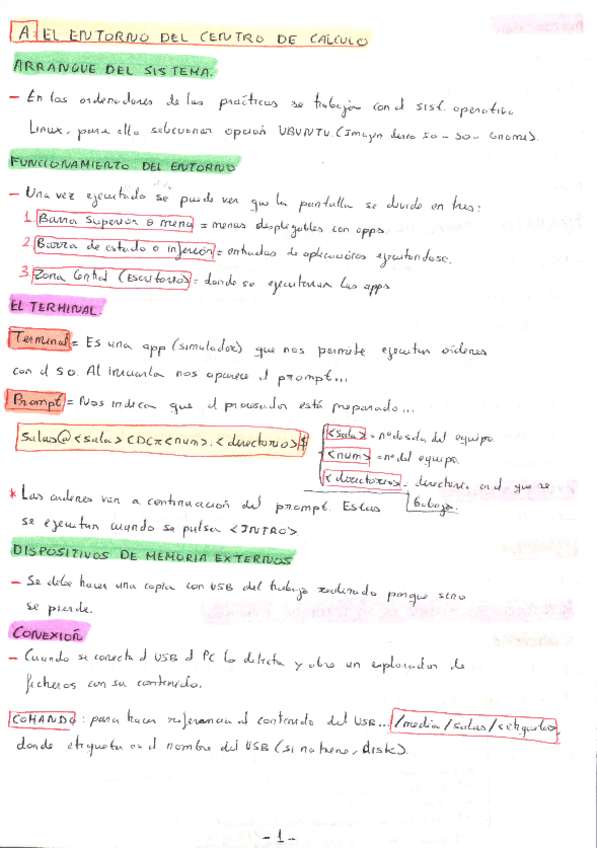 A EL ENTORNO DEL CENTRO DE CALCULO
ARRANQUE DEL SISTEMA.
- En los ordenadores de las prácticas se trabaja con el sist. operativo
Linux, para ello seleccionar opción UBUNTU. (Imagen disco so - so - Gnome).
FUNCIONAMIENTO DEL ENTORNO
- Una vez ejecutado se puede ver que la pantalla se divide en tres:
1 Barra superior o menú = menus desplegables con apps.
2 Barra de estado o inferior = entradas de aplicaciones ejecutandose.
3 Zona Central (Escritorio) = donde se ejecutarian las apps
EL TERMINAL.
Terminal = Es una app (simulador) que nos permite ejecutar ordenes
con el SO. Al iniciarla nos aparece el prompt...
Prompt = Nos indica que el procesador está preparado...
salas@<sala>CDC<num>:<directorio>$
<sala> = nº de sala del equipo.
<num> = nº del equipo.
<directorio> = directorio en el que se
trabaja.
* Las ordenes van a continuación del prompt. Estas
se ejecutan cuando se pulsa <INTRO>.
DISPOSITIVOS DE MEMORIA EXTERNOS
- Se debe hacer una copia con USB del trabajo realizado porque sino
se pierde.
CONEXIÓN
- Cuando se conecta el USB el PC lo detecta y abre un explorador de
ficheros con su contenido.
COMANDO: para hacer referencia al contenido del USB... /media/salas/<etiqueta>,
donde etiqueta es el nombre del USB (si no tiene, disk).
- 1 -